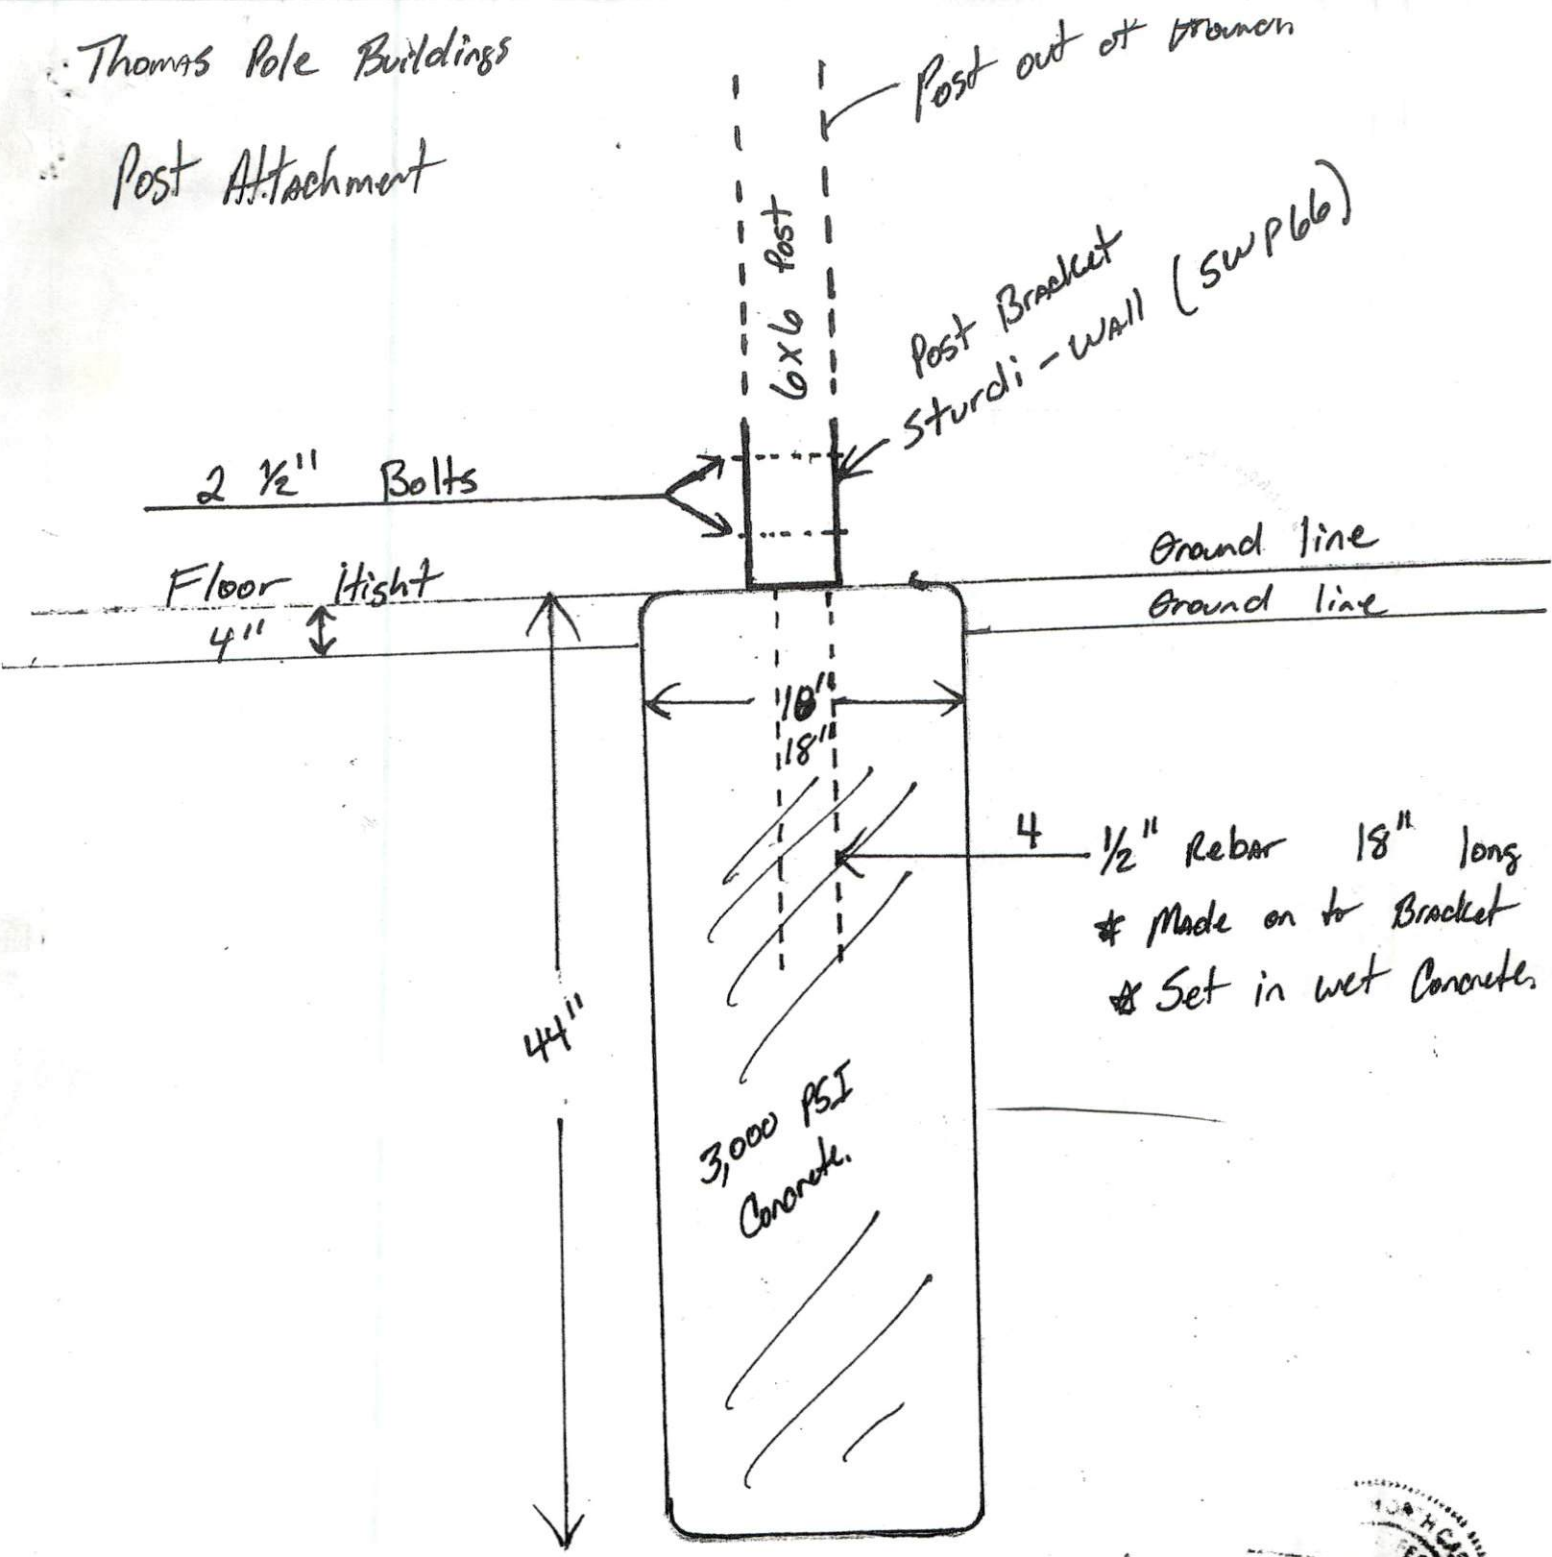 Thomas Pole Buildings
Post out of
Post Attachment
6x6 Post
Post Bracket
Sturdi-Wall (SWP66)
2 1/2" Bolts
Floor Hight
4"
Ground line
Ground line
18"
18"
4 1/2" Rebar 18" long
* Made on to Bracket
* Set in wet Concrete.
44"
3,000 PSI
Concrete.
NORTH CA